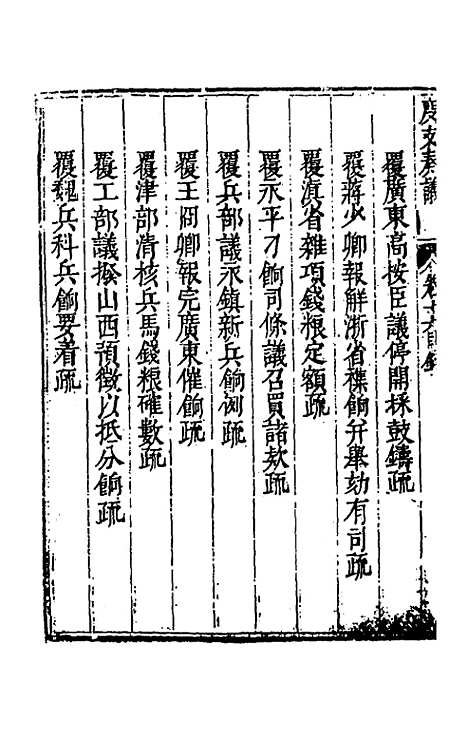 度支奏議
卷十六目錄
覆廣東高按臣議停開採鼓鑄疏
覆蔣少卿報解浙省襍餉并舉劾有司疏
覆滇省雜項錢粮定額疏
覆永平才餉司條議召買諸欵疏
覆兵部議永鎮新兵餉疏
覆王冏卿報完廣東催餉疏
覆津部清核兵馬錢粮確數疏
覆工部議撥山西預徵以抵分餉疏
覆魏兵科兵餉要着疏